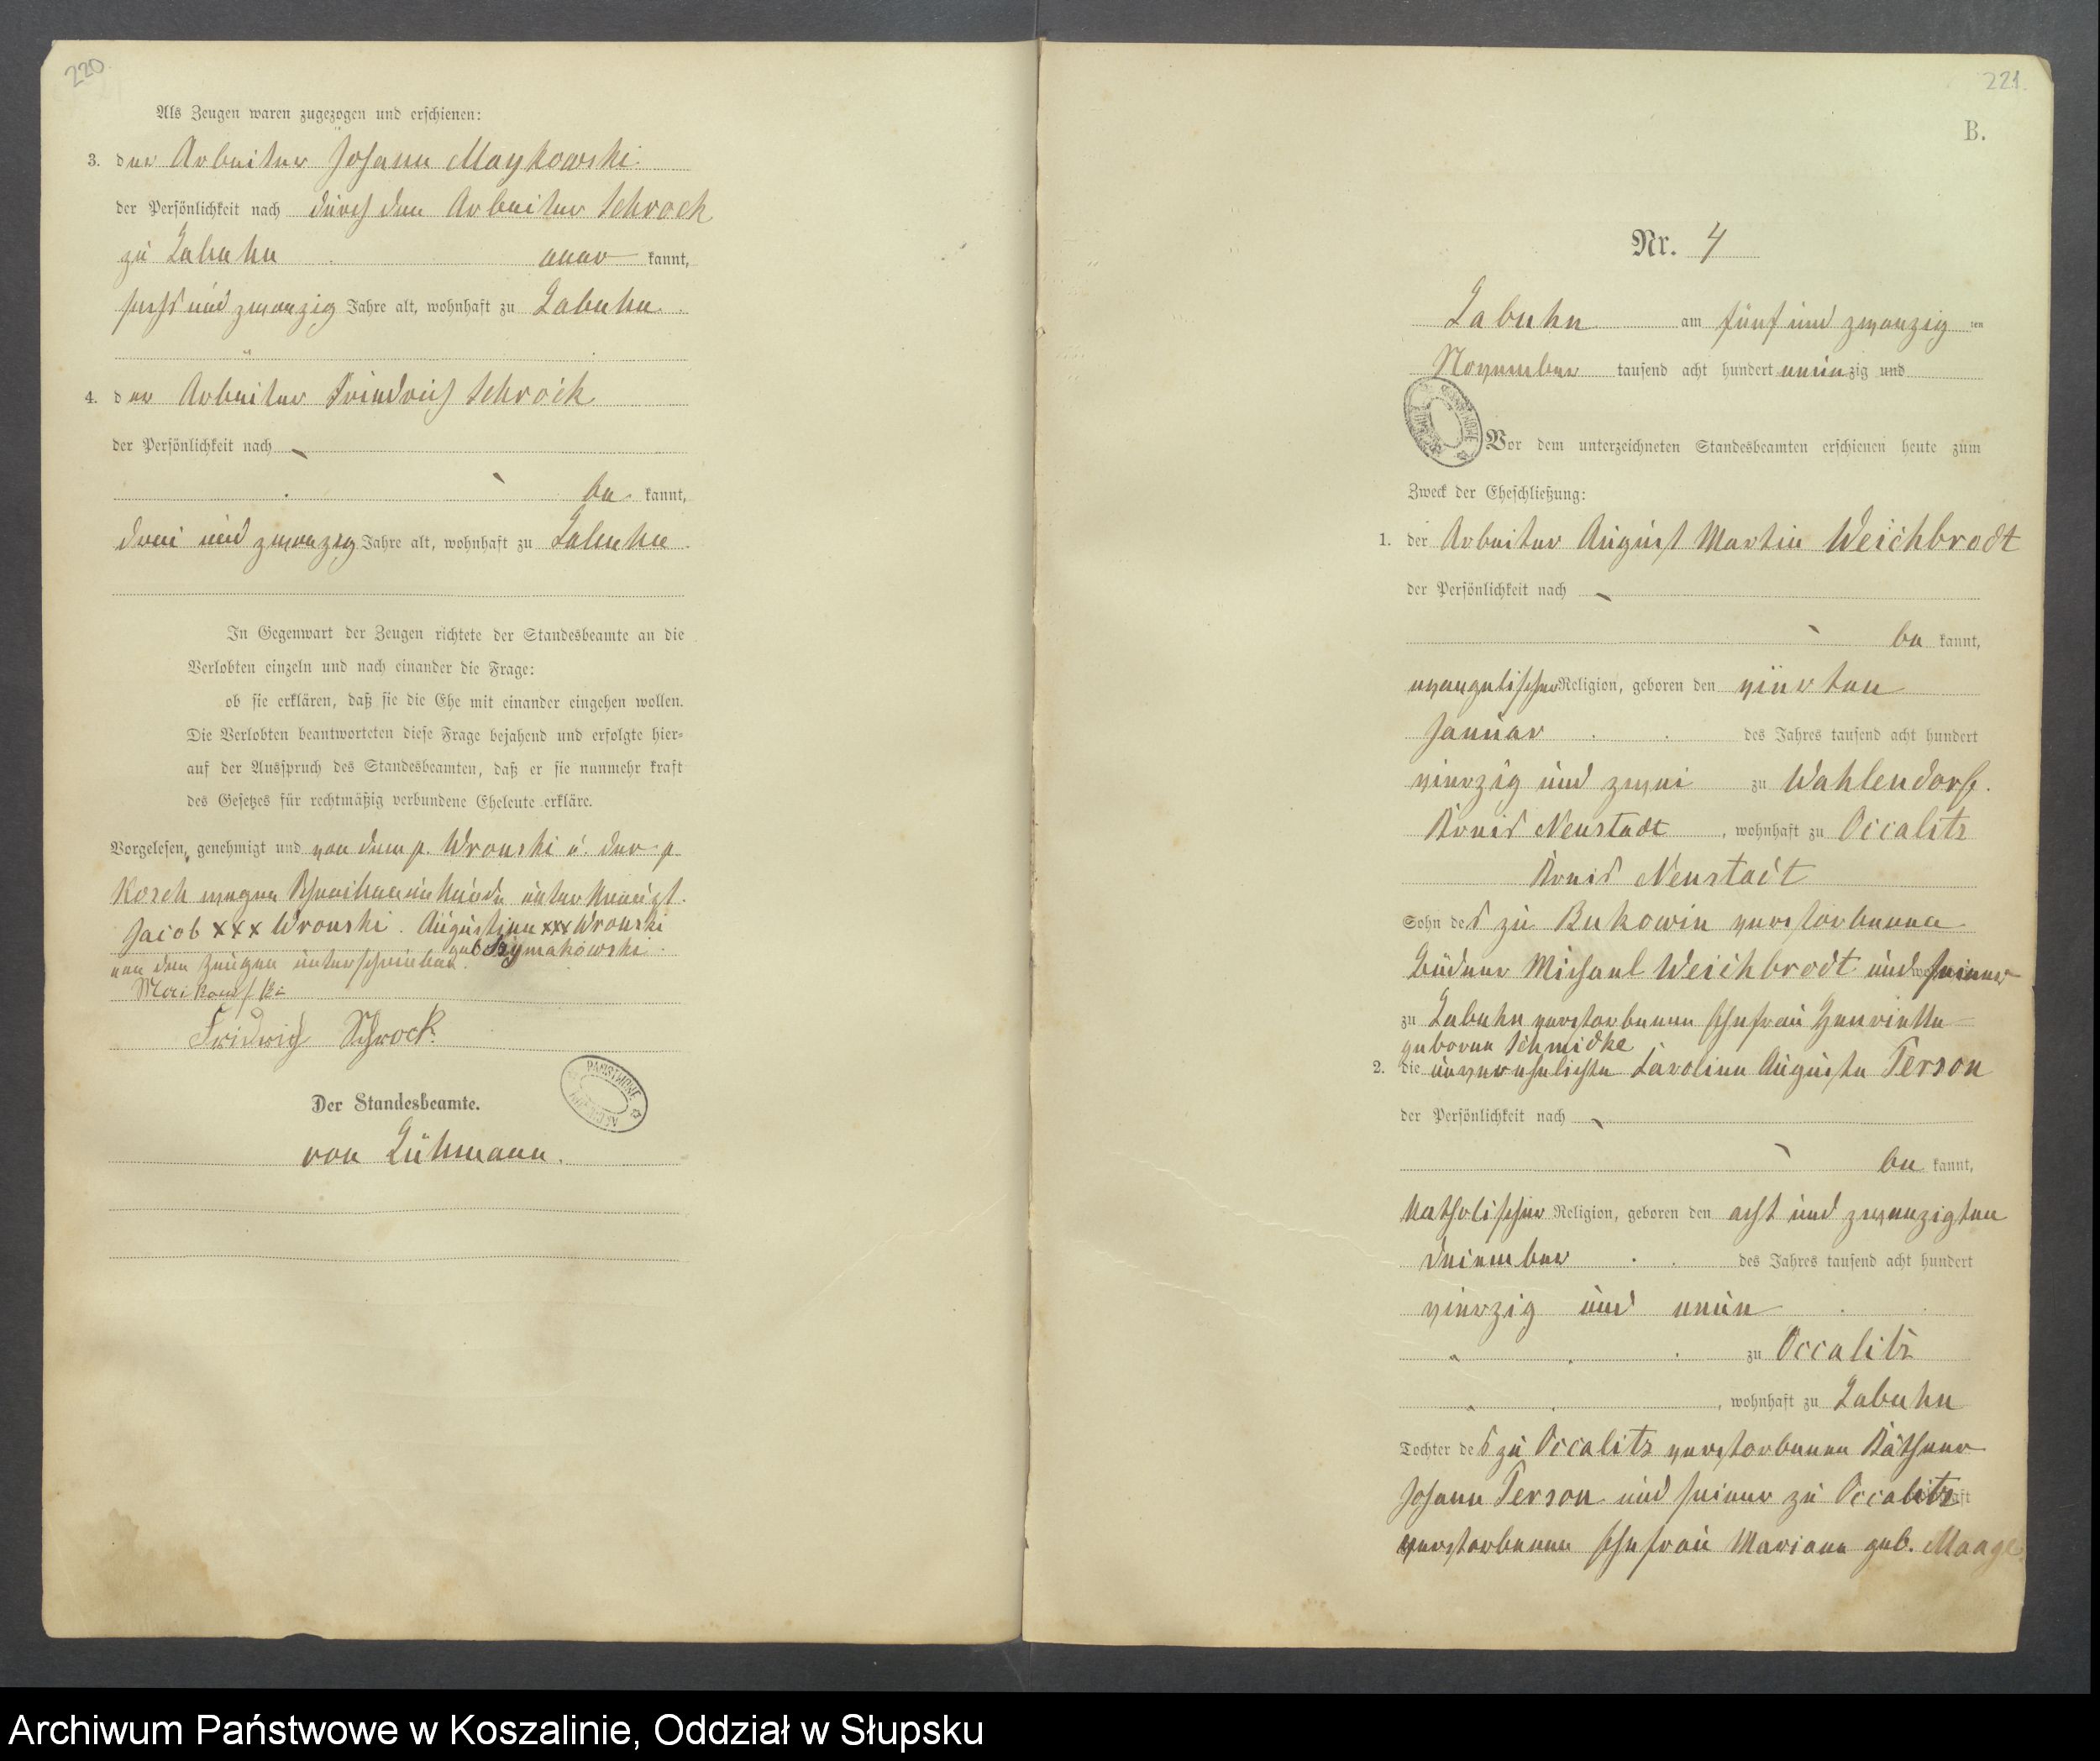 220
Als Zeugen waren zugezogen und erschienen:
3. der Arbeiter Johann Maykowski
der Persönlichkeit nach durch den Arbeiter Schrock
zu Labuhn aner kannt,
sechs und zwanzig Jahre alt, wohnhaft zu Labuhn.
4. der Arbeiter Friedrich Schrock
der Persönlichkeit nach
be kannt,
drei und zwanzig Jahre alt, wohnhaft zu Labuhn.
In Gegenwart der Zeugen richtete der Standesbeamte an die
Verlobten einzeln und nach einander die Frage:
ob sie erklären, daß sie die Ehe mit einander eingehen wollen.
Die Verlobten beantworteten diese Frage bejahend und erfolgte hier-
auf der Ausspruch des Standesbeamten, daß er sie nunmehr kraft
des Gesetzes für rechtmäßig verbundene Eheleute erkläre.
Vorgelesen, genehmigt und von dem p. Wronski u. der p
Kosch wegen Schreibensunkunde unterkreuzt.
Jacob xxx Wronski. Augustine xxx Wronski
geb. Szymakowski.
von den Zeugen unterschrieben.
Maikowski
Fridrich Schrock.
Der Standesbeamte.
von Lühmann.
221.
B.
Nr. 4
Labuhn am fünf und zwanzig ten
November tausend acht hundert neunzig und
Vor dem unterzeichneten Standesbeamten erschienen heute zum
Zweck der Eheschließung:
1. der Arbeiter August Martin Weichbrodt
der Persönlichkeit nach
be kannt,
evangelischer Religion, geboren den vierten
Januar des Jahres tausend acht hundert
vierzig und zwei zu Wahlendorf.
Kreis Neustadt, wohnhaft zu Occalitz
Kreis Neustadt
Sohn des zu Bukowin verstorbenen
Büdner Michael Weichbrodt und seiner
zu Labuhn verstorbenen Ehefrau Henriette
geborne Schmidke
2. die unverehelichte Caroline Auguste Terson
der Persönlichkeit nach
be kannt,
katholischer Religion, geboren den acht und zwanzigten
Dezember des Jahres tausend acht hundert
vierzig und neun
zu Occalitz
, wohnhaft zu Labuhn
Tochter des zu Occalitz verstorbenen Käthner
Johann Terson und seiner zu Occalitz
verstorbenen Ehefrau Mariane geb. Maage
Archiwum Państwowe w Koszalinie, Oddział w Słupsku